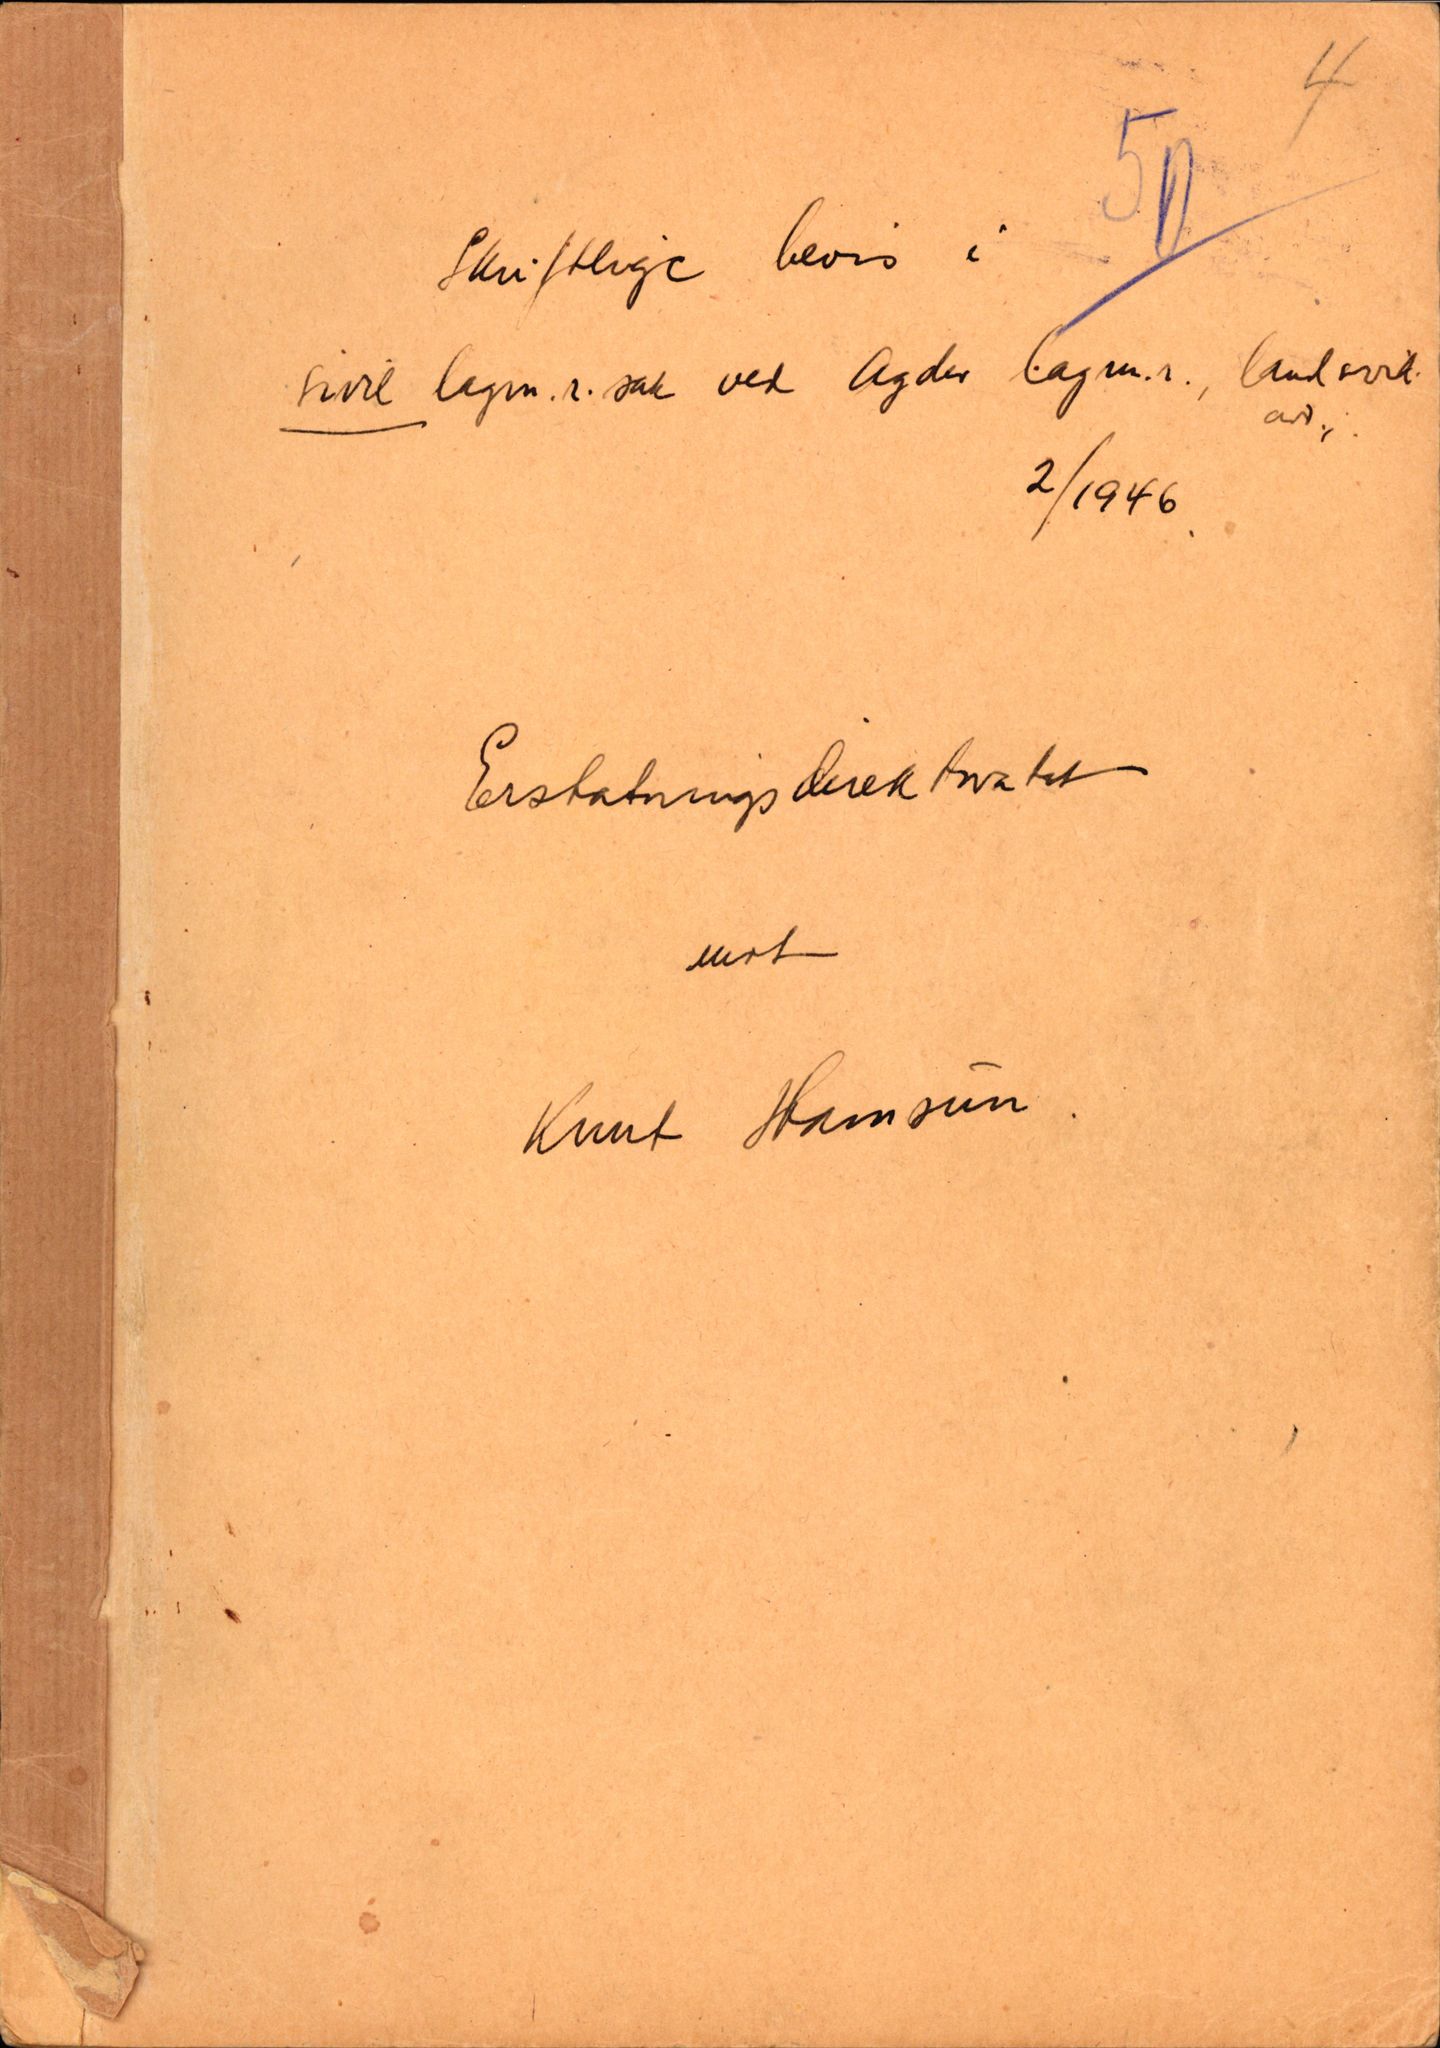 4
5
Skriftlige bevis i
sivil lagm.r. sak ved Agder lagm.r., landsvik.
avd.,
2/1946.
Erstatningsdirektoratet
mot
Knut Hamsun.